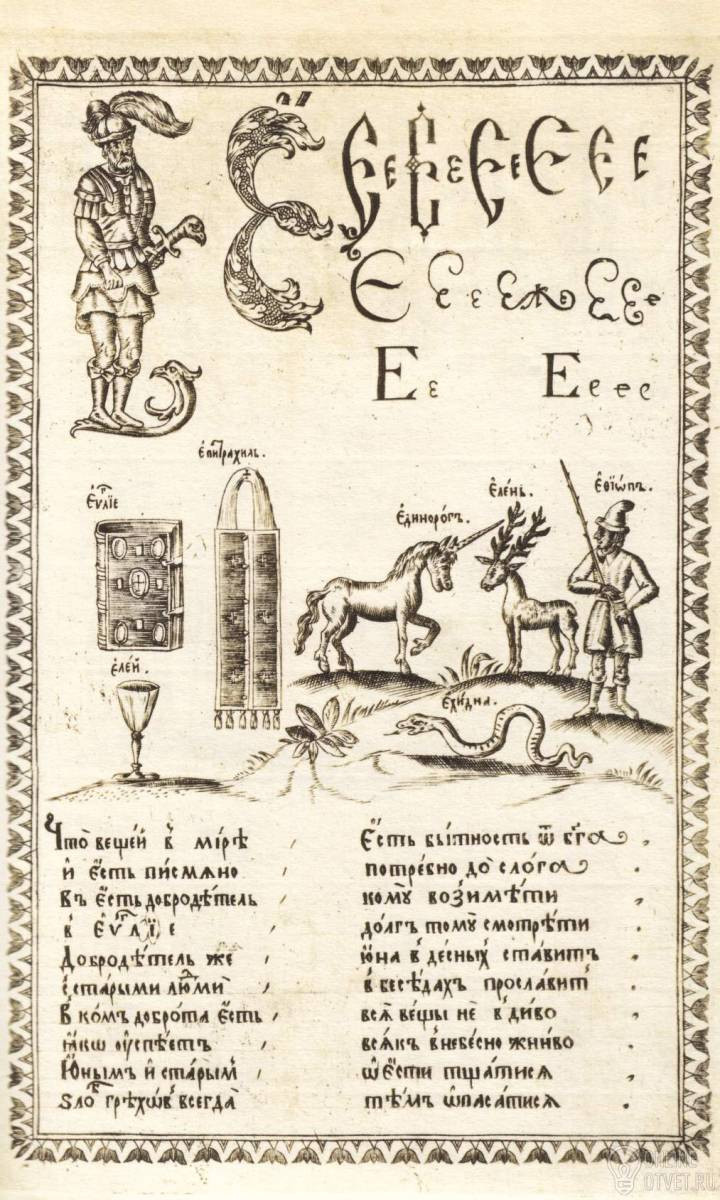 Е е Е е Е е Е е е
Е е е еже е е е
Е е Е е е е
Єпитрахиль.
Єѵⷢ҇лїе
Єдинорогъ. Єлень. Єѳїѡпъ.
Єлей.
Єхидна.
Что вещей в̾ мірѣ , Єсть бытность ѿ бг҃а ,
и єсть писмѧно , потребно до слога .
Въ єсть добродѣтель , кому возимѣти ,
в̾ Єѵⷢ҇лїе долгъ тому смотрѣти .
Добродѣтель же , юна в̾ десных̾ ставитъ ,
с̾старыми людми , в̾ бесѣдахъ прославит̾ .
В̾ комъ доброта єсть , всѧ вещы не в̾ диво .
ꙗкѡ ѹспѣетъ , всѧкъ в̾ небесно жниво .
Юнымъ и старым̾ , ѡ єсти тщатисѧ ,
ѕлоⷭ҇ грѣхѡв̾ всегда тѣмъ ѡпасатисѧ .
ОТVET.RU